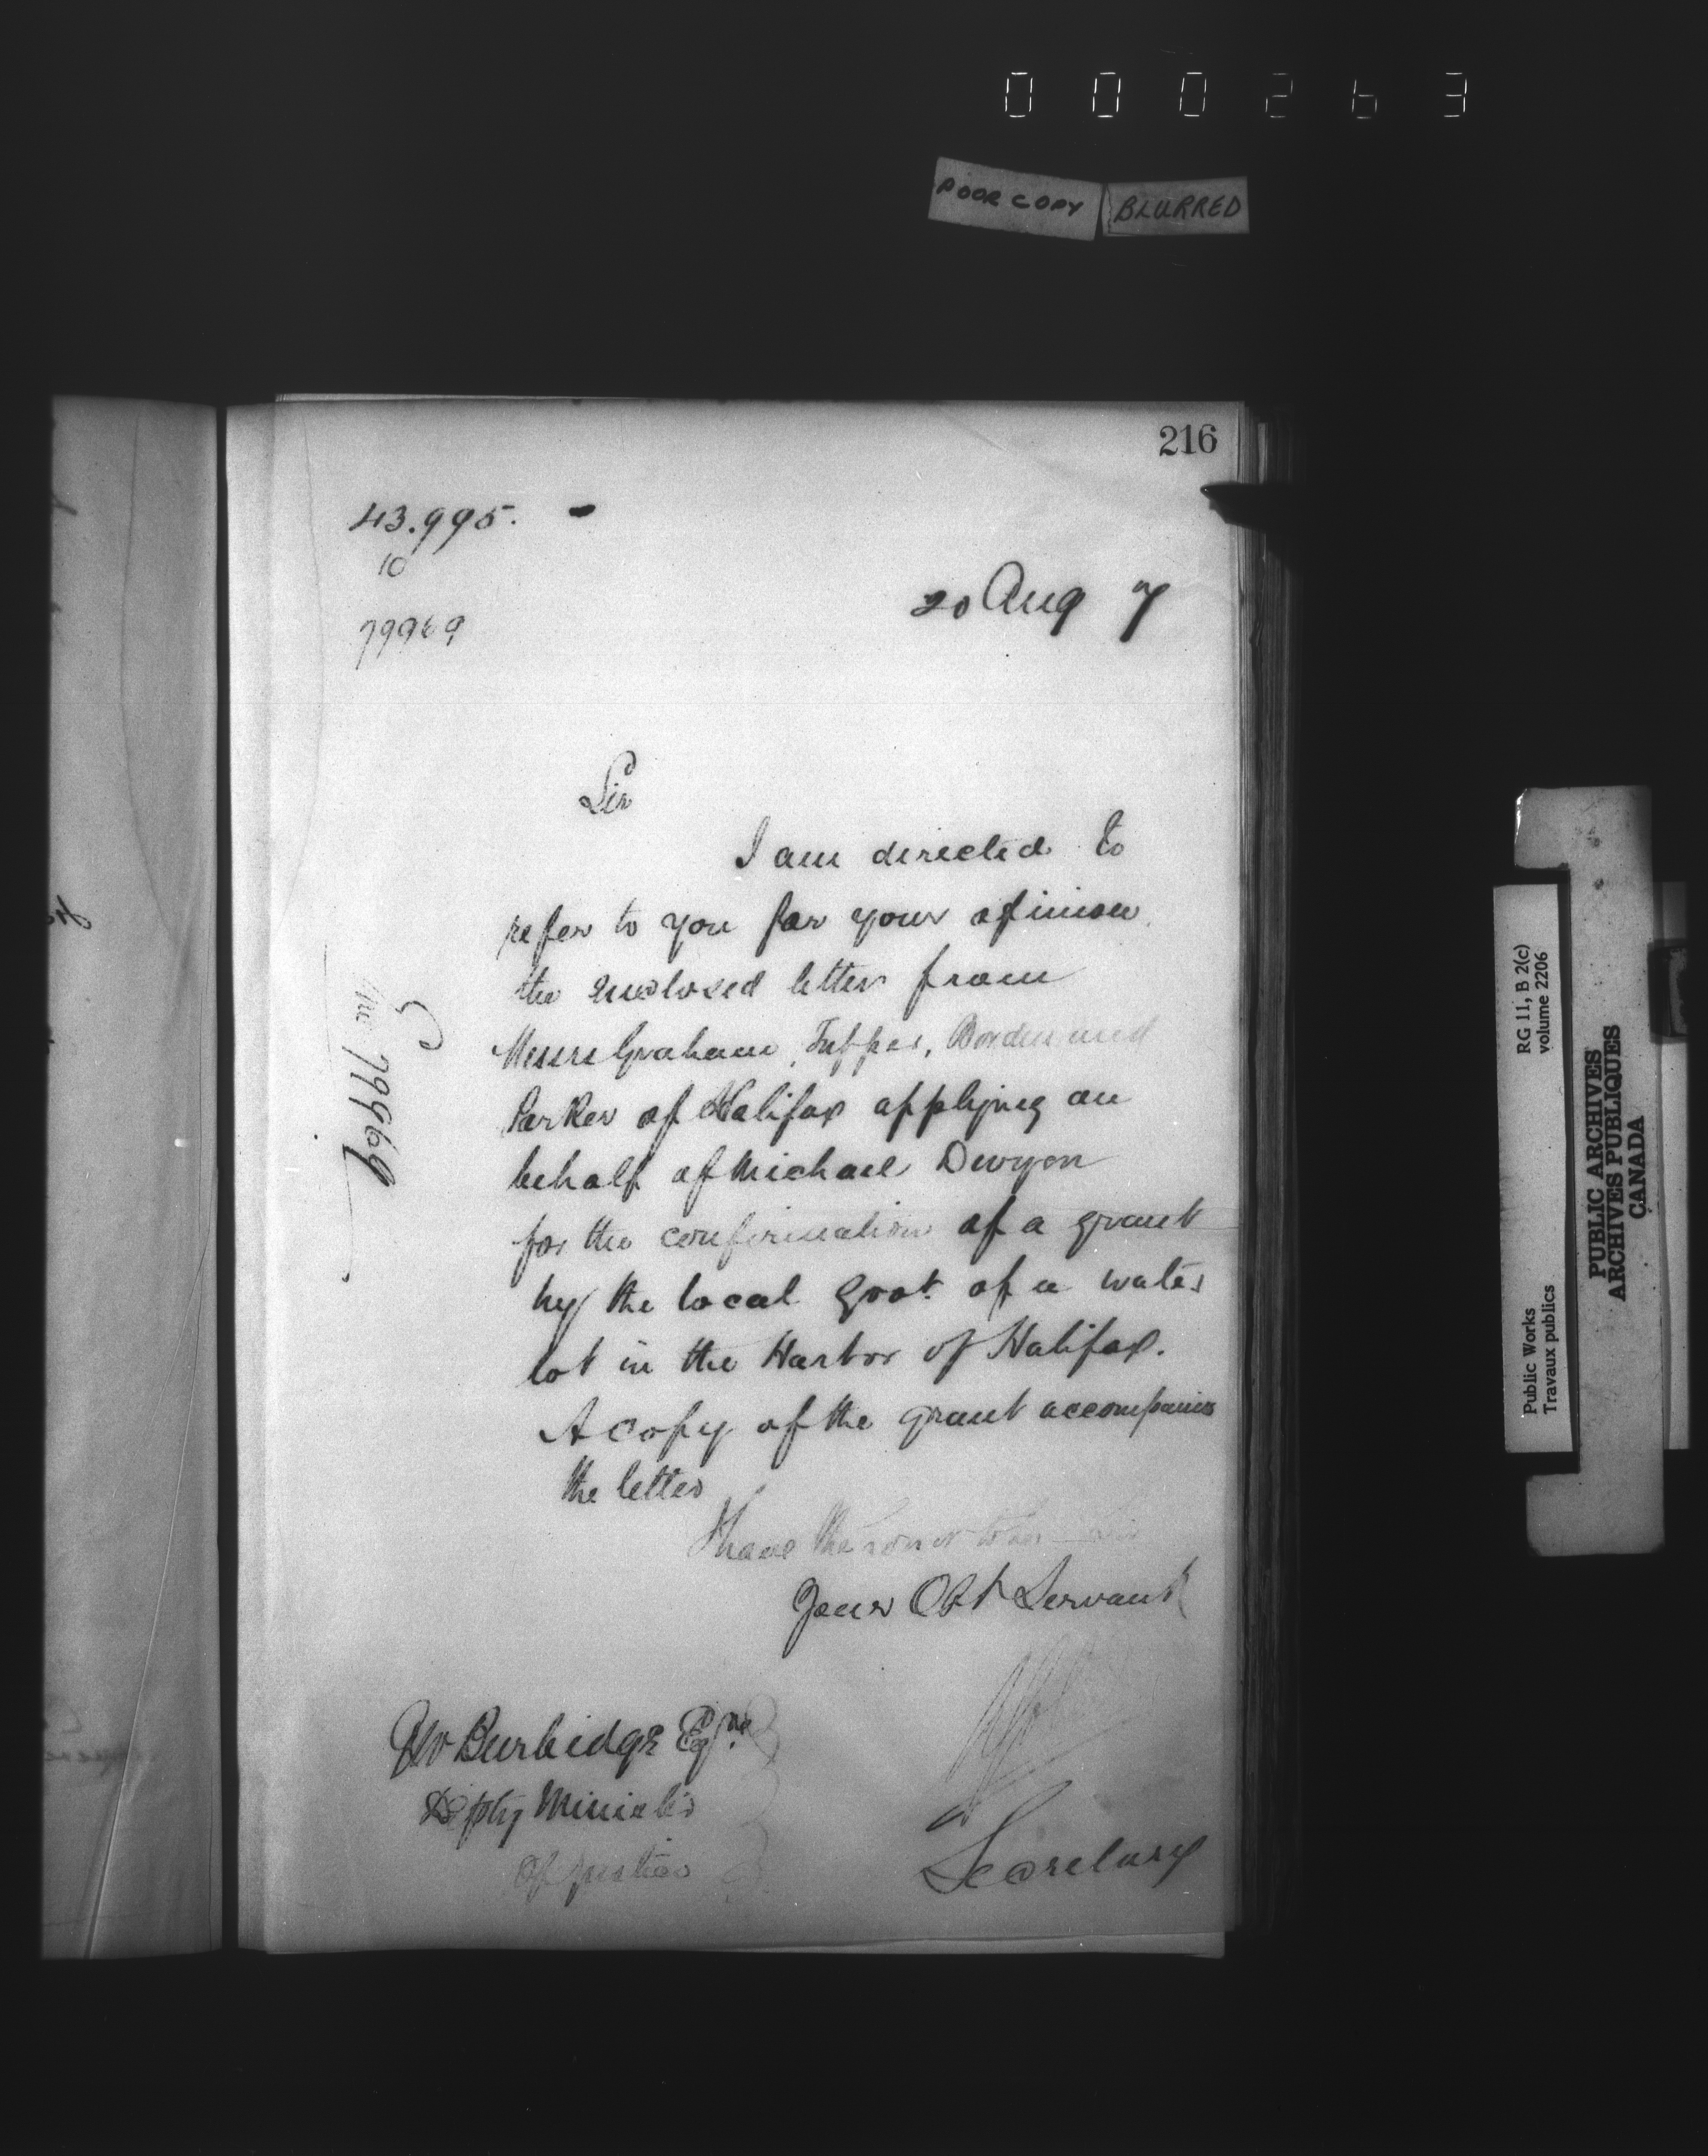 000263
POOR COPY BLURRED
216
43.995.
10
79969
20 Aug 7
Sir
I am directed to
refer to you for your opinion
the enclosed letter from
Messrs Graham, Tupper, Borden and
Parker of Halifax applying on
behalf of Michael Dwyer
for the confirmation of a grant
by the local Govt. of a water
lot in the Harbor of Halifax.
A copy of the grant accompanies
the letter
I have the honor to be Sir
Your Obt Servant
Secretary
Burbidge Esqre.
Depty Minister
Of Justice
79969
Public Works
Travaux publics
RG 11, B 2(c)
volume 2206
PUBLIC ARCHIVES
ARCHIVES PUBLIQUES
CANADA